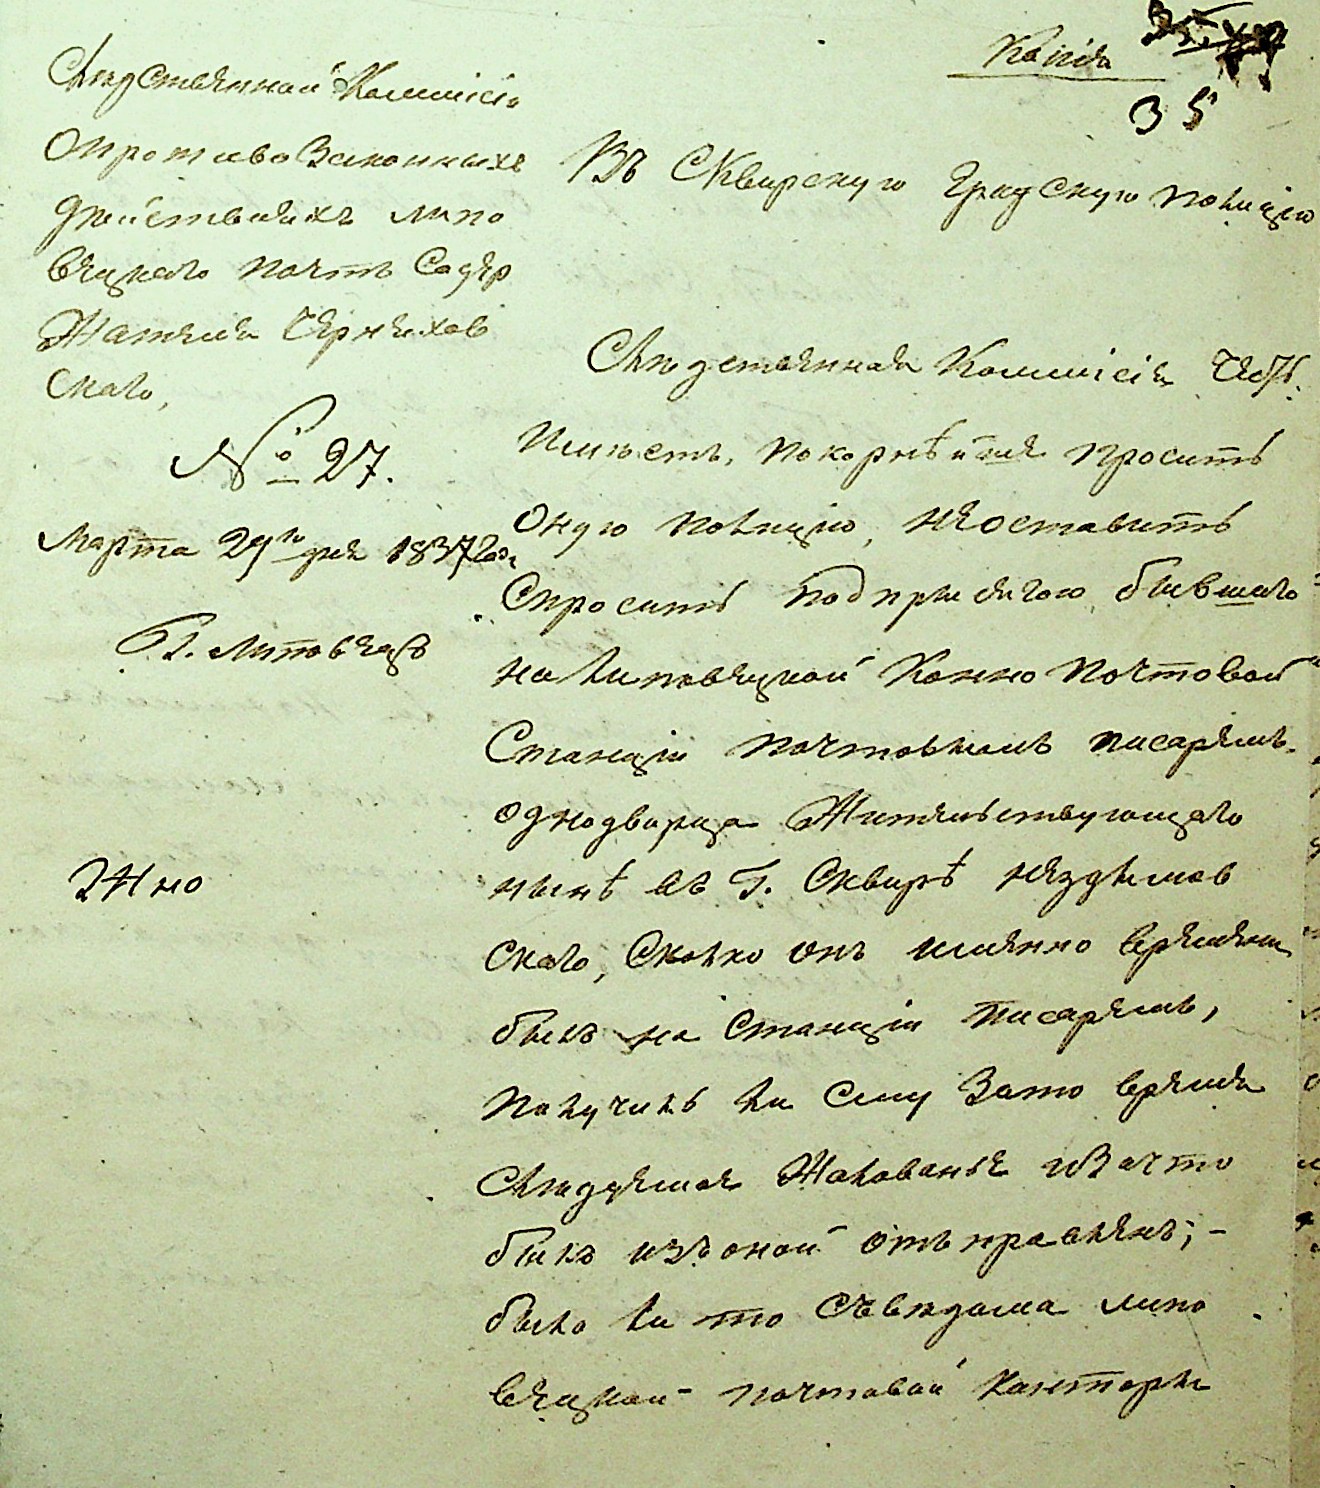 Копія
35
Слѣдственной Коммисіи
О противозаконныхъ
дѣйствияхъ липо
вецкаго почт Содер
жателя Чернихов
скаго,
№ 27.
Марта 29го дня 1837 го.
Г. Липовецъ
24 но
Въ Сквирскую Градскую полицію
Слѣдственная Коммисія честь
имѣетъ, покорнѣйше просить
Оную полицію, неоставить
Спросить подприсягою бывшаго
на липовецкой Конно почтовой
Станціи почтовымъ писаремъ
однодворца Жительствующаго
нынѣ въ Г. Сквирѣ
скаго, Сколко онъ именно времени
былъ на Станціи писаремъ,
получилъ ли ему Зато время
Слѣдуемое Жалованье и Зачто
былъ изъ оной отъправленъ; -
было ли то Съвѣдома липо
вецкой почтовой Канторы